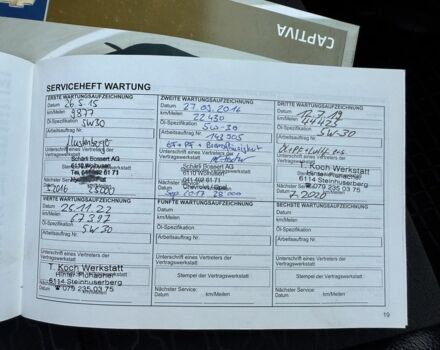 CAPTIVA
SERVICEHEFT WARTUNG
ERSTE WARTUNGSAUFZEICHNUNG
Datum 26.5.15
km/Meilen 9877
Öl-Spezifikation 5W30
Arbeitsauftrag Nr.
Unterschrift eines Vertreters der
Vertragswerkstatt
Schärli Bossert AG
6110 Wolhusen
Nächster Service:
Datum 2016 km/Meilen
ZWEITE WARTUNGSAUFZEICHNUNG
Datum 27.09.2016
km/Meilen 22430
Öl-Spezifikation 5W-30
Arbeitsauftrag Nr. 143905
ÖF + PF + Bremsflüssigkeit
Schärli Bossert AG
6110 Wolhusen
041 492 61 71
Chevrolet / Opel
Nächster Service:
Datum Sep. 2017 28.000
DRITTE WARTUNGSAUFZEICHNUNG
Datum
km/Meilen 44425
Öl-Spezifikation 5W-30
Arbeitsauftrag Nr.
Unterschrift eines Vertreters der
Vertragswerkstatt
T. Koch Werkstatt
6114 Steinhuserberg
079 235 03 75
Nächster Service:
Datum
VIERTE WARTUNGSAUFZEICHNUNG
Datum 25.11.22
km/Meilen 67397
Öl-Spezifikation 5W30
Arbeitsauftrag Nr.
Unterschrift eines Vertreters der
Vertragswerkstatt
T. Koch Werkstatt
6114 Steinhuserberg
☎ 079 235 03 75
Nächster Service:
Datum km/Meilen
FÜNFTE WARTUNGSAUFZEICHNUNG
Datum
km/Meilen
Öl-Spezifikation
Arbeitsauftrag Nr.
Unterschrift eines Vertreters der
Vertragswerkstatt
Stempel der Vertragswerkstatt
Nächster Service:
Datum km/Meilen
SECHSTE WARTUNGSAUFZEICHNUNG
Datum
km/Meilen
Öl-Spezifikation
Arbeitsauftrag Nr.
Unterschrift eines Vertreters der
Vertragswerkstatt
Stempel der Vertragswerkstatt
Nächster Service:
Datum km/Meilen
19